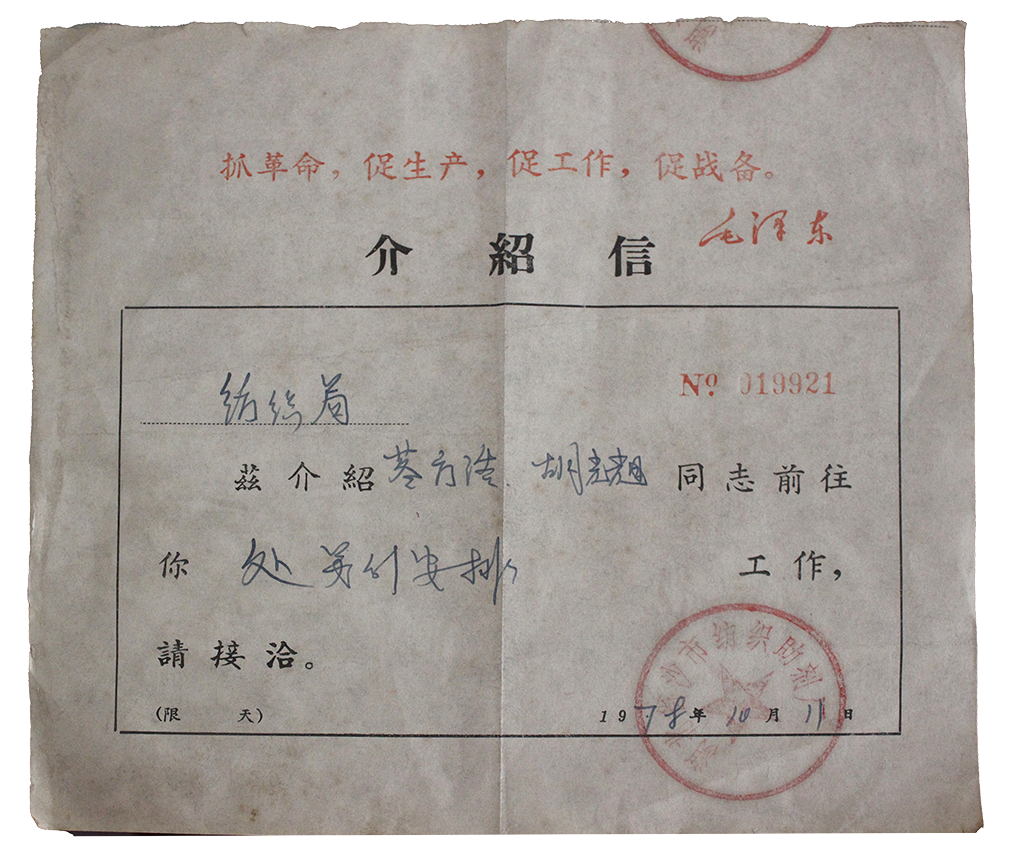 抓革命，促生产，促工作，促战备。
毛泽东
介紹信
纺织局
Nº 019921
茲介紹 方浩、胡 同志前往
你处 另行安排 工作，
請接洽。
(限 天)
1978年10月11日
市纺织助剂